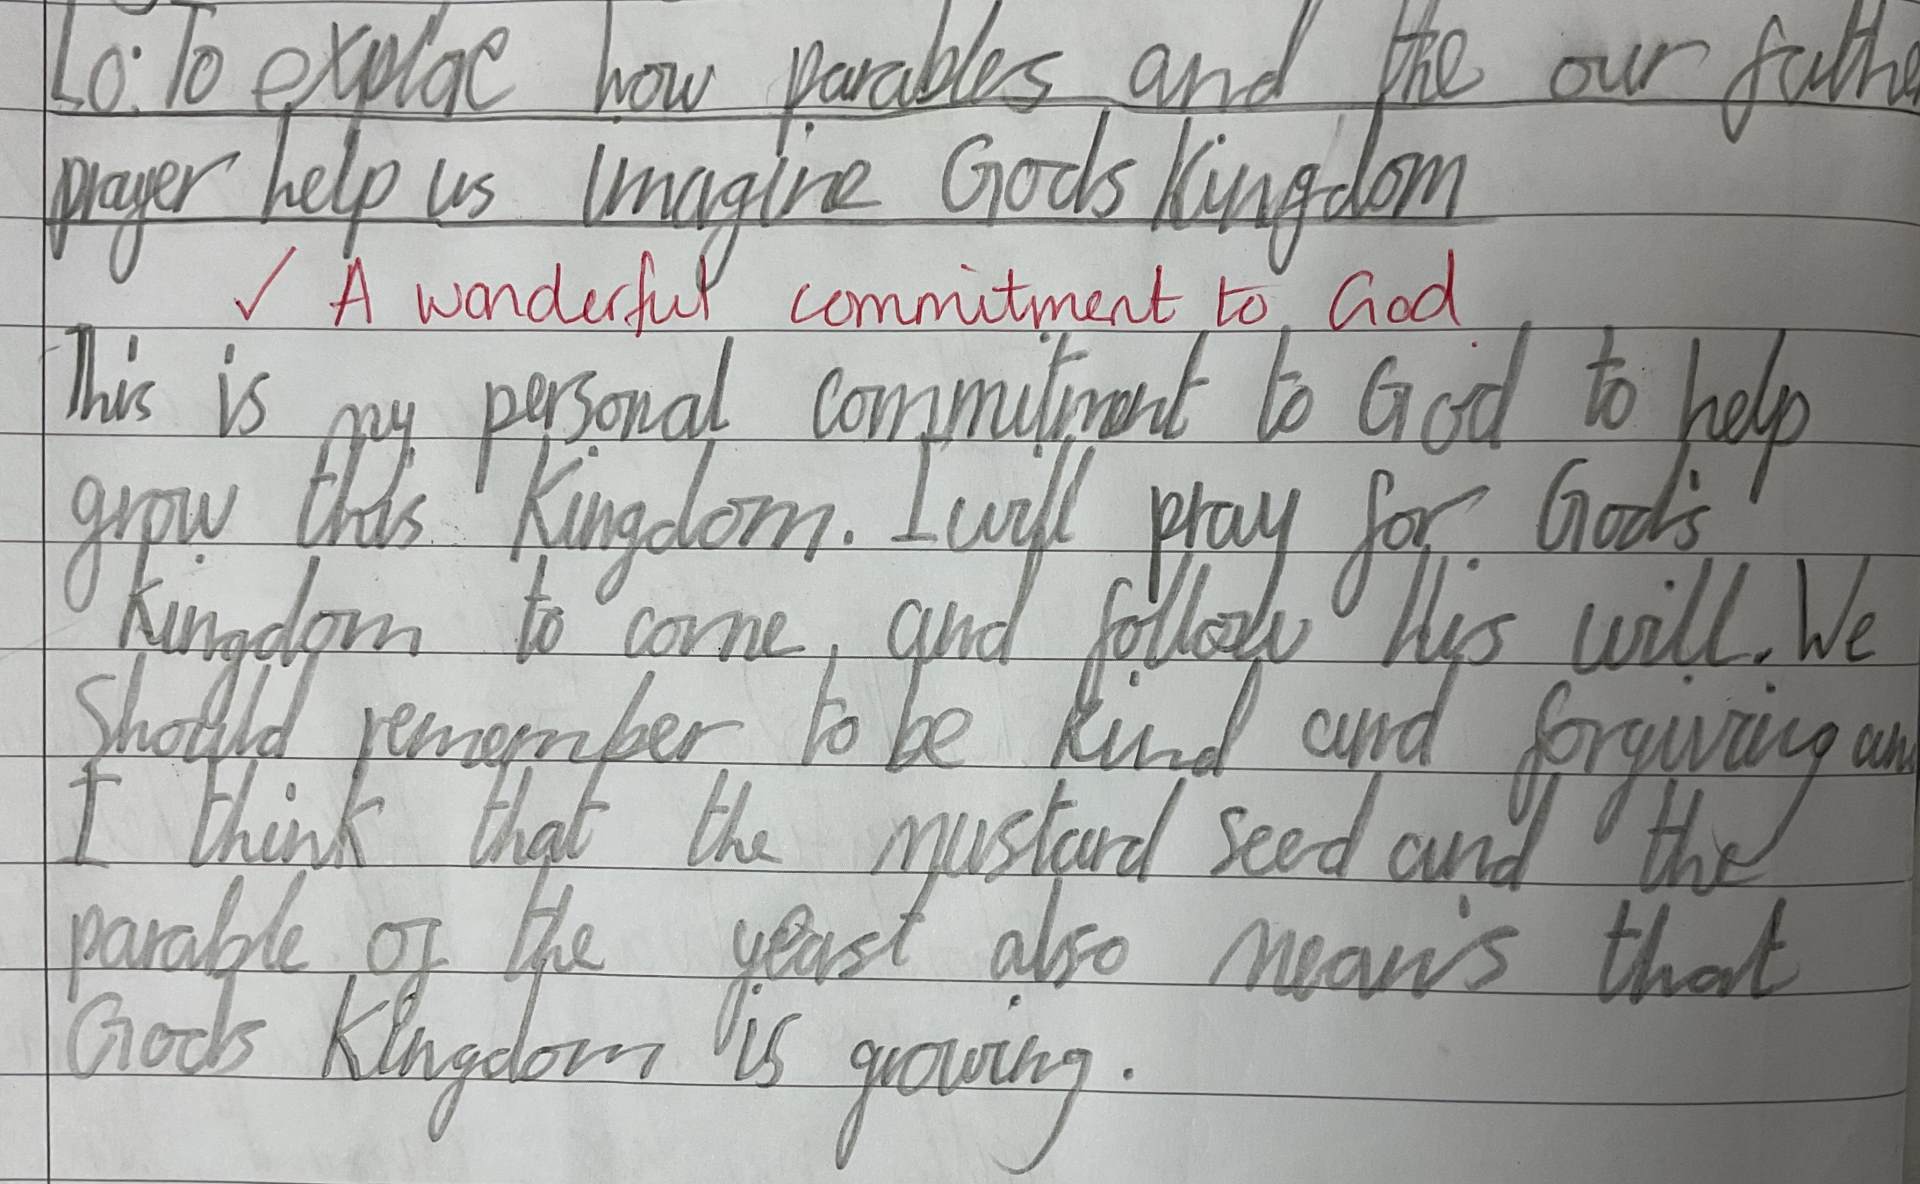 Lo: To explae how parables and the our fathe
prayer help us imagine Gods Kingdom
✓ A wonderful commitment to God
This is my personal commitment to God to help
grow this Kingdom. I will pray for God's
Kingdom to come, and follow His will. We
Should remember to be kind and forgiving an
I think that the mustard seed and the
parable of the yeast also means that
Gods Kingdom is growing.